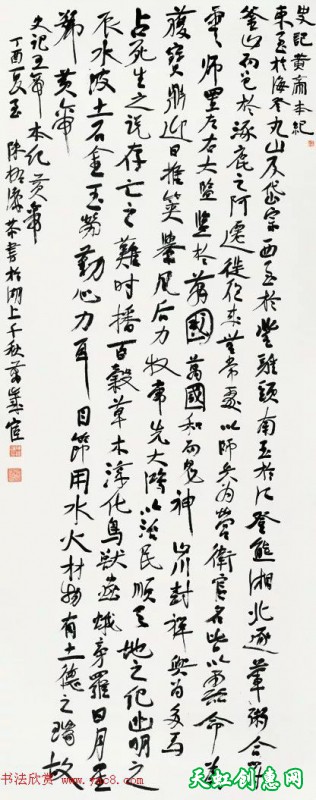 史記黃帝本紀
東至於海登丸山及岱宗西至於登雞頭南至於江登熊湘北逐葷粥合符
釜山而邑於涿鹿之阿遷徙往來無常處以師兵為營衛官名皆以雲命為
雲師置左右大監監於萬國萬國和而鬼神山川封禪與為多焉
獲寶鼎迎日推筴舉風后力牧常先大鴻以治民順天地之紀幽明之
占死生之說存亡之難時播百穀草木淳化鳥獸蟲蛾旁羅日月星
辰水波土石金玉勞勤心力耳目節用水火材物有土德之瑞故
號黃帝
史記五帝本紀黃帝
丁酉夏至 陳 恭書於湖上千秋萬歲宦
书法欣赏
天虹创意网